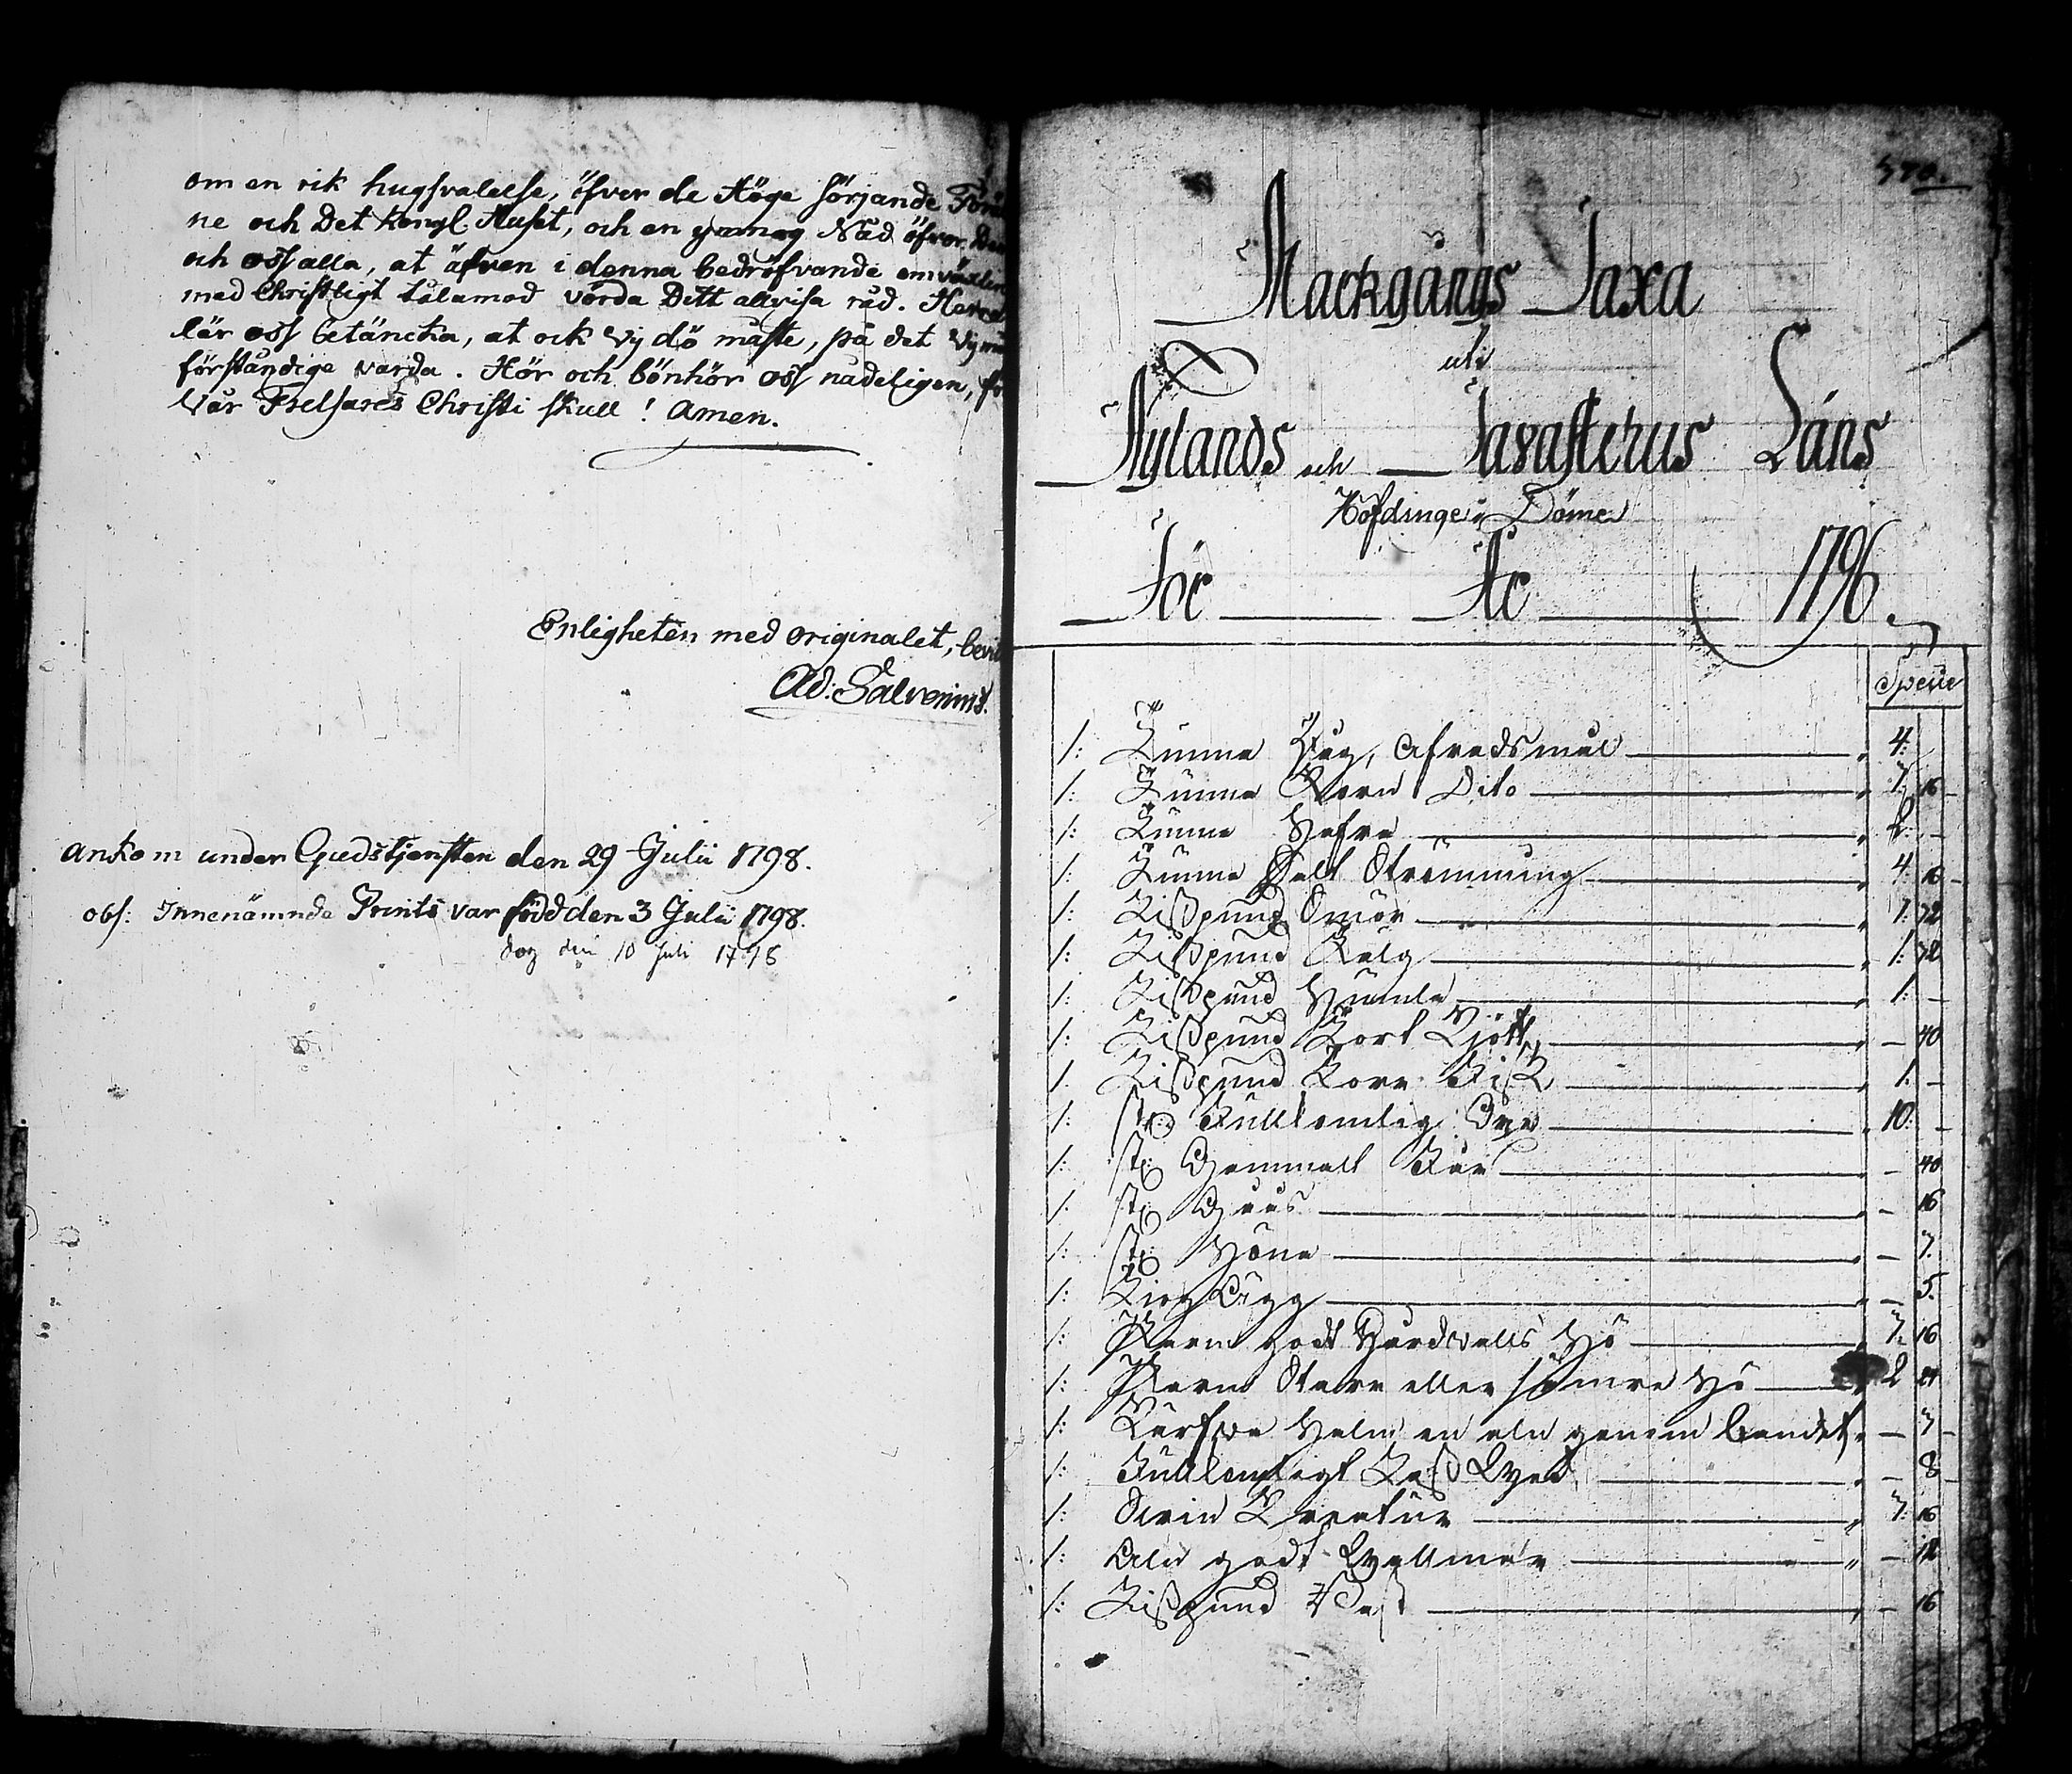 om en rik hugsvalelse, öfver de Höge sörjande
ne och Det Kongl. Huset, och en ymnog Nåd öfver
och oss alla, at äfven i denna bedröfvande omväxlin
med Christligt tålamod vörda Ditt allvisa råd.
lär oss betäncka, at ock Vij dö måste, på det Vij
förståndige varda. Hör och bönhör oss nådeligen,
Vår Frelsares Christi skull! Amen.
Enligheten med originalet,
Ad: Salvenius.
Ankom under Gudstjensten den 29 Julii 1798.
obs: Innenämnde Prints var född den 3 Julii 1798.
dog den 10 Juli 1798
Markgångs Taxa
uti
Nylands och Tavastehus Läns
Höfdinge Döme
För År 1796.
1: Tunna Råg, Afradsmål 4:
1: Tunna Korn Dito 3: 16
1: Tunna Hafra 2: –
1: Tunna Salt Strömming 4: 16
1: Lispund Smör 1: 32
1: Lispund Talg 1: 32
1: Lispund Humla 1: –
1: Lispund Tort Kjött – 40
1: Lispund Torr Fisk 1: –
1: st: Fullkomlig Oxe 10: –
1: st: Gammalt Får – 40
1: st: Gaas – 16
1: st: Höna – 3.
1: Tiog Ägg – 5.
1: Parm godt Hårdvalls Hö 3: 16
1: Parm Starr eller sämre Hö 2 24
1: Kärfwa Halm en aln genom bandet – 3
1: Fullkomligt Lass Wed – 8
1: Creatur 3: 16
1: Aln godt Wallmar – 12
1: Lispund – 16